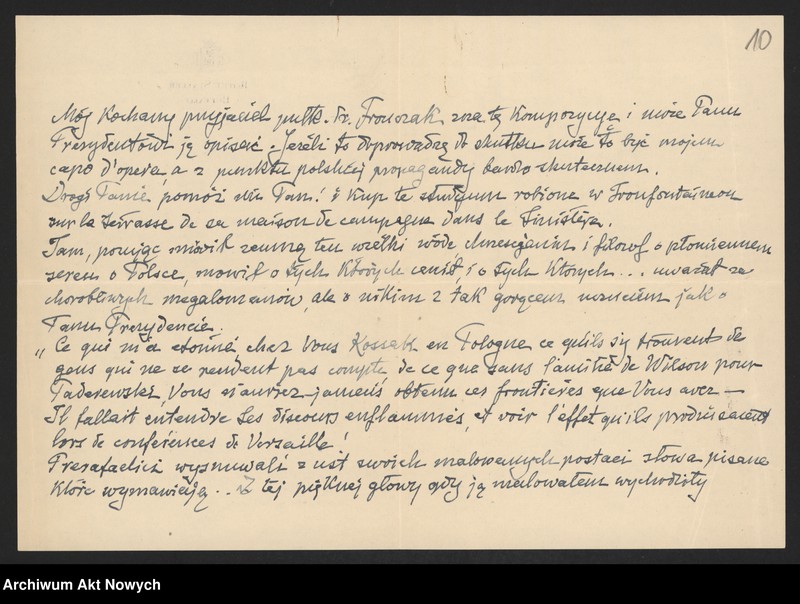 10
Mój Kochany przyjaciel pułk. Dr. Fronczak zna tę Kompozycyę i może Panu
Prezydentowi ją opisać. Jeżeli to doprowadzę do skutku może to być mojem
capo d'opera, a z punktu polskiej propagandy bardzo skutecznem.
Drogi Panie, pomóż mi Pan! i Kup te studyum robione w
sur la terrasse de sa maison de campagne dans le Finistère.
Tam, pomiędzy zemną ten wielki wódz chrześcjanin i filozof o płomiennem
sercu o Polsce, mówił o tych Których cenił, i o tych Których... uważał za
chorobliwych megalomanów, ale o nikim z tak gorącem uczuciem jak o
Panu Prezydencie.
„Ce qui m'a étonné, chez Vous Kossak en Pologne ce qu'ils s'y trouvent de
gens qui ne se rendent pas compte de ce que sans l'amitié de Wilson pour
Paderewski, Vous n'auriez jamais obtenu ces frontières que Vous avez —
Il fallait entendre ses discours enflammés, et voir l'effet qu'ils produisaient
lors de conférences de Versaille!
Prerafaelici wysnuwali z ust swoich malowanych postaci słowa pisane
które wymawiają... Z tej pięknej głowy gdy ją malowałem wychodziły
Archiwum Akt Nowych